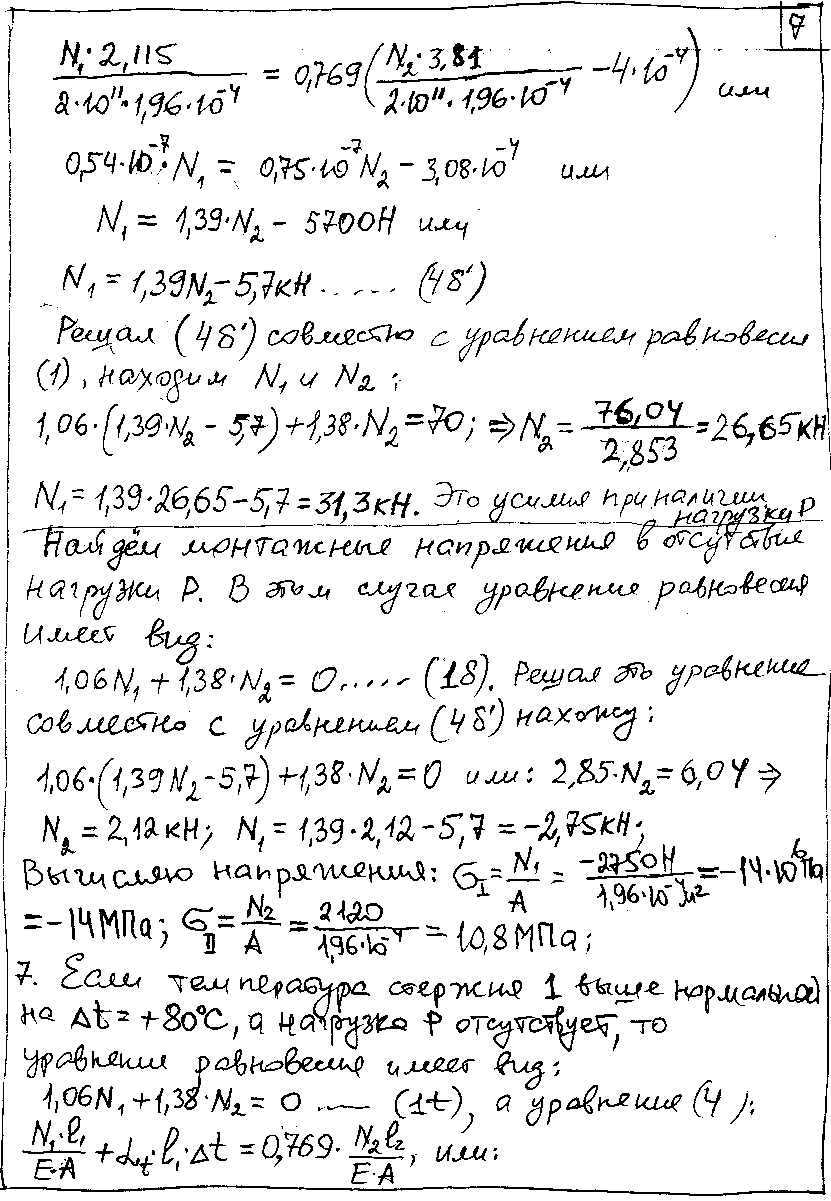 7
N₁·2,115 / 2·10¹¹·1,96·10⁻⁴ = 0,769(N₂·3,81 / 2·10¹¹·1,96·10⁻⁴ − 4·10⁻⁴) или
0,54·10⁻⁷·N₁ = 0,75·10⁻⁷N₂ − 3,08·10⁻⁴ или
N₁ = 1,39·N₂ − 5700Н или
N₁ = 1,39N₂ − 5,7кН ..... (4δ')
Решая (4δ') совместно с уравнением равновесия
(1), находим N₁ и N₂:
1,06·(1,39·N₂ − 5,7) + 1,38·N₂ = 70; ⇒ N₂ = 76,04 / 2,853 = 26,65кН
N₁ = 1,39·26,65 − 5,7 = 31,3кН. Это усилия при наличии
нагрузки P
Найдём монтажные напряжения в отсутствие
нагрузки P. В этом случае уравнение равновесия
имеет вид:
1,06N₁ + 1,38·N₂ = 0..... (1δ). Решая это уравнение
совместно с уравнением (4δ') нахожу:
1,06·(1,39N₂ − 5,7) + 1,38·N₂ = 0 или: 2,85·N₂ = 6,04 ⇒
N₂ = 2,12кН; N₁ = 1,39·2,12 − 5,7 = −2,75кН;
Вычисляю напряжения: σ_I = N₁ / A = −2750Н / 1,96·10⁻⁴м² = −14·10⁶Па
= −14МПа; σ_II = N₂ / A = 2120 / 1,96·10⁻⁴ = 10,8МПа;
7. Если температура стержня 1 выше нормальной
на Δt = +80°C, а нагрузка P отсутствует, то
уравнение равновесия имеет вид:
1,06N₁ + 1,38·N₂ = 0 ..... (1t), а уравнение (4):
N₁·l₁ / E·A + α_t·l₁·Δt = 0,769· N₂l₂ / E·A, или: